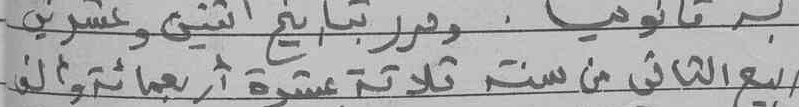 به قانونيا . وحرر بتاريخ اثنين وعشرين
ربيع الثاني من سنة ثلاثة عشرة أربعمائة وألف